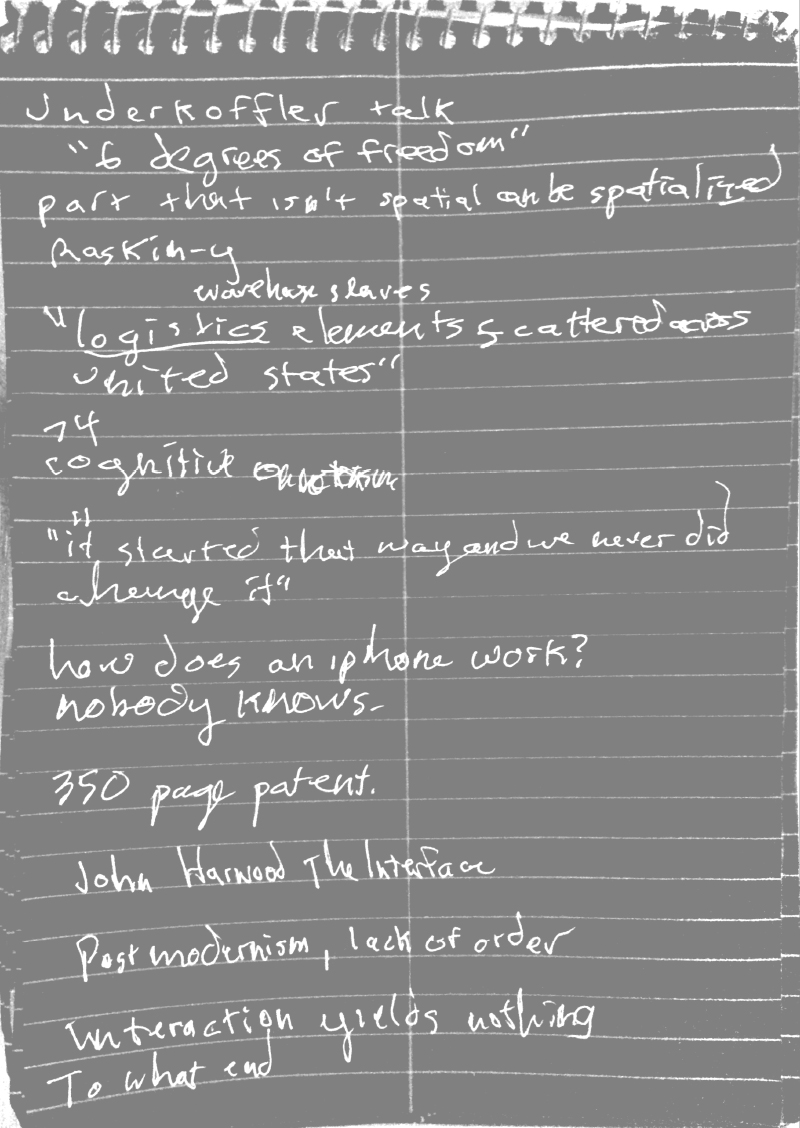 Underkoffler talk
"6 degrees of freedom"
part that isn't spatial can be spatialized
Raskin-y
warehouse slaves
"logistics elements scattered across
united states"
74
cognitive
"it started that way and we never did
change it"
how does an iphone work?
nobody knows-
350 page patent.
John Harwood The Interface
Post modernism, lack of order
Interaction yields nothing
To what end